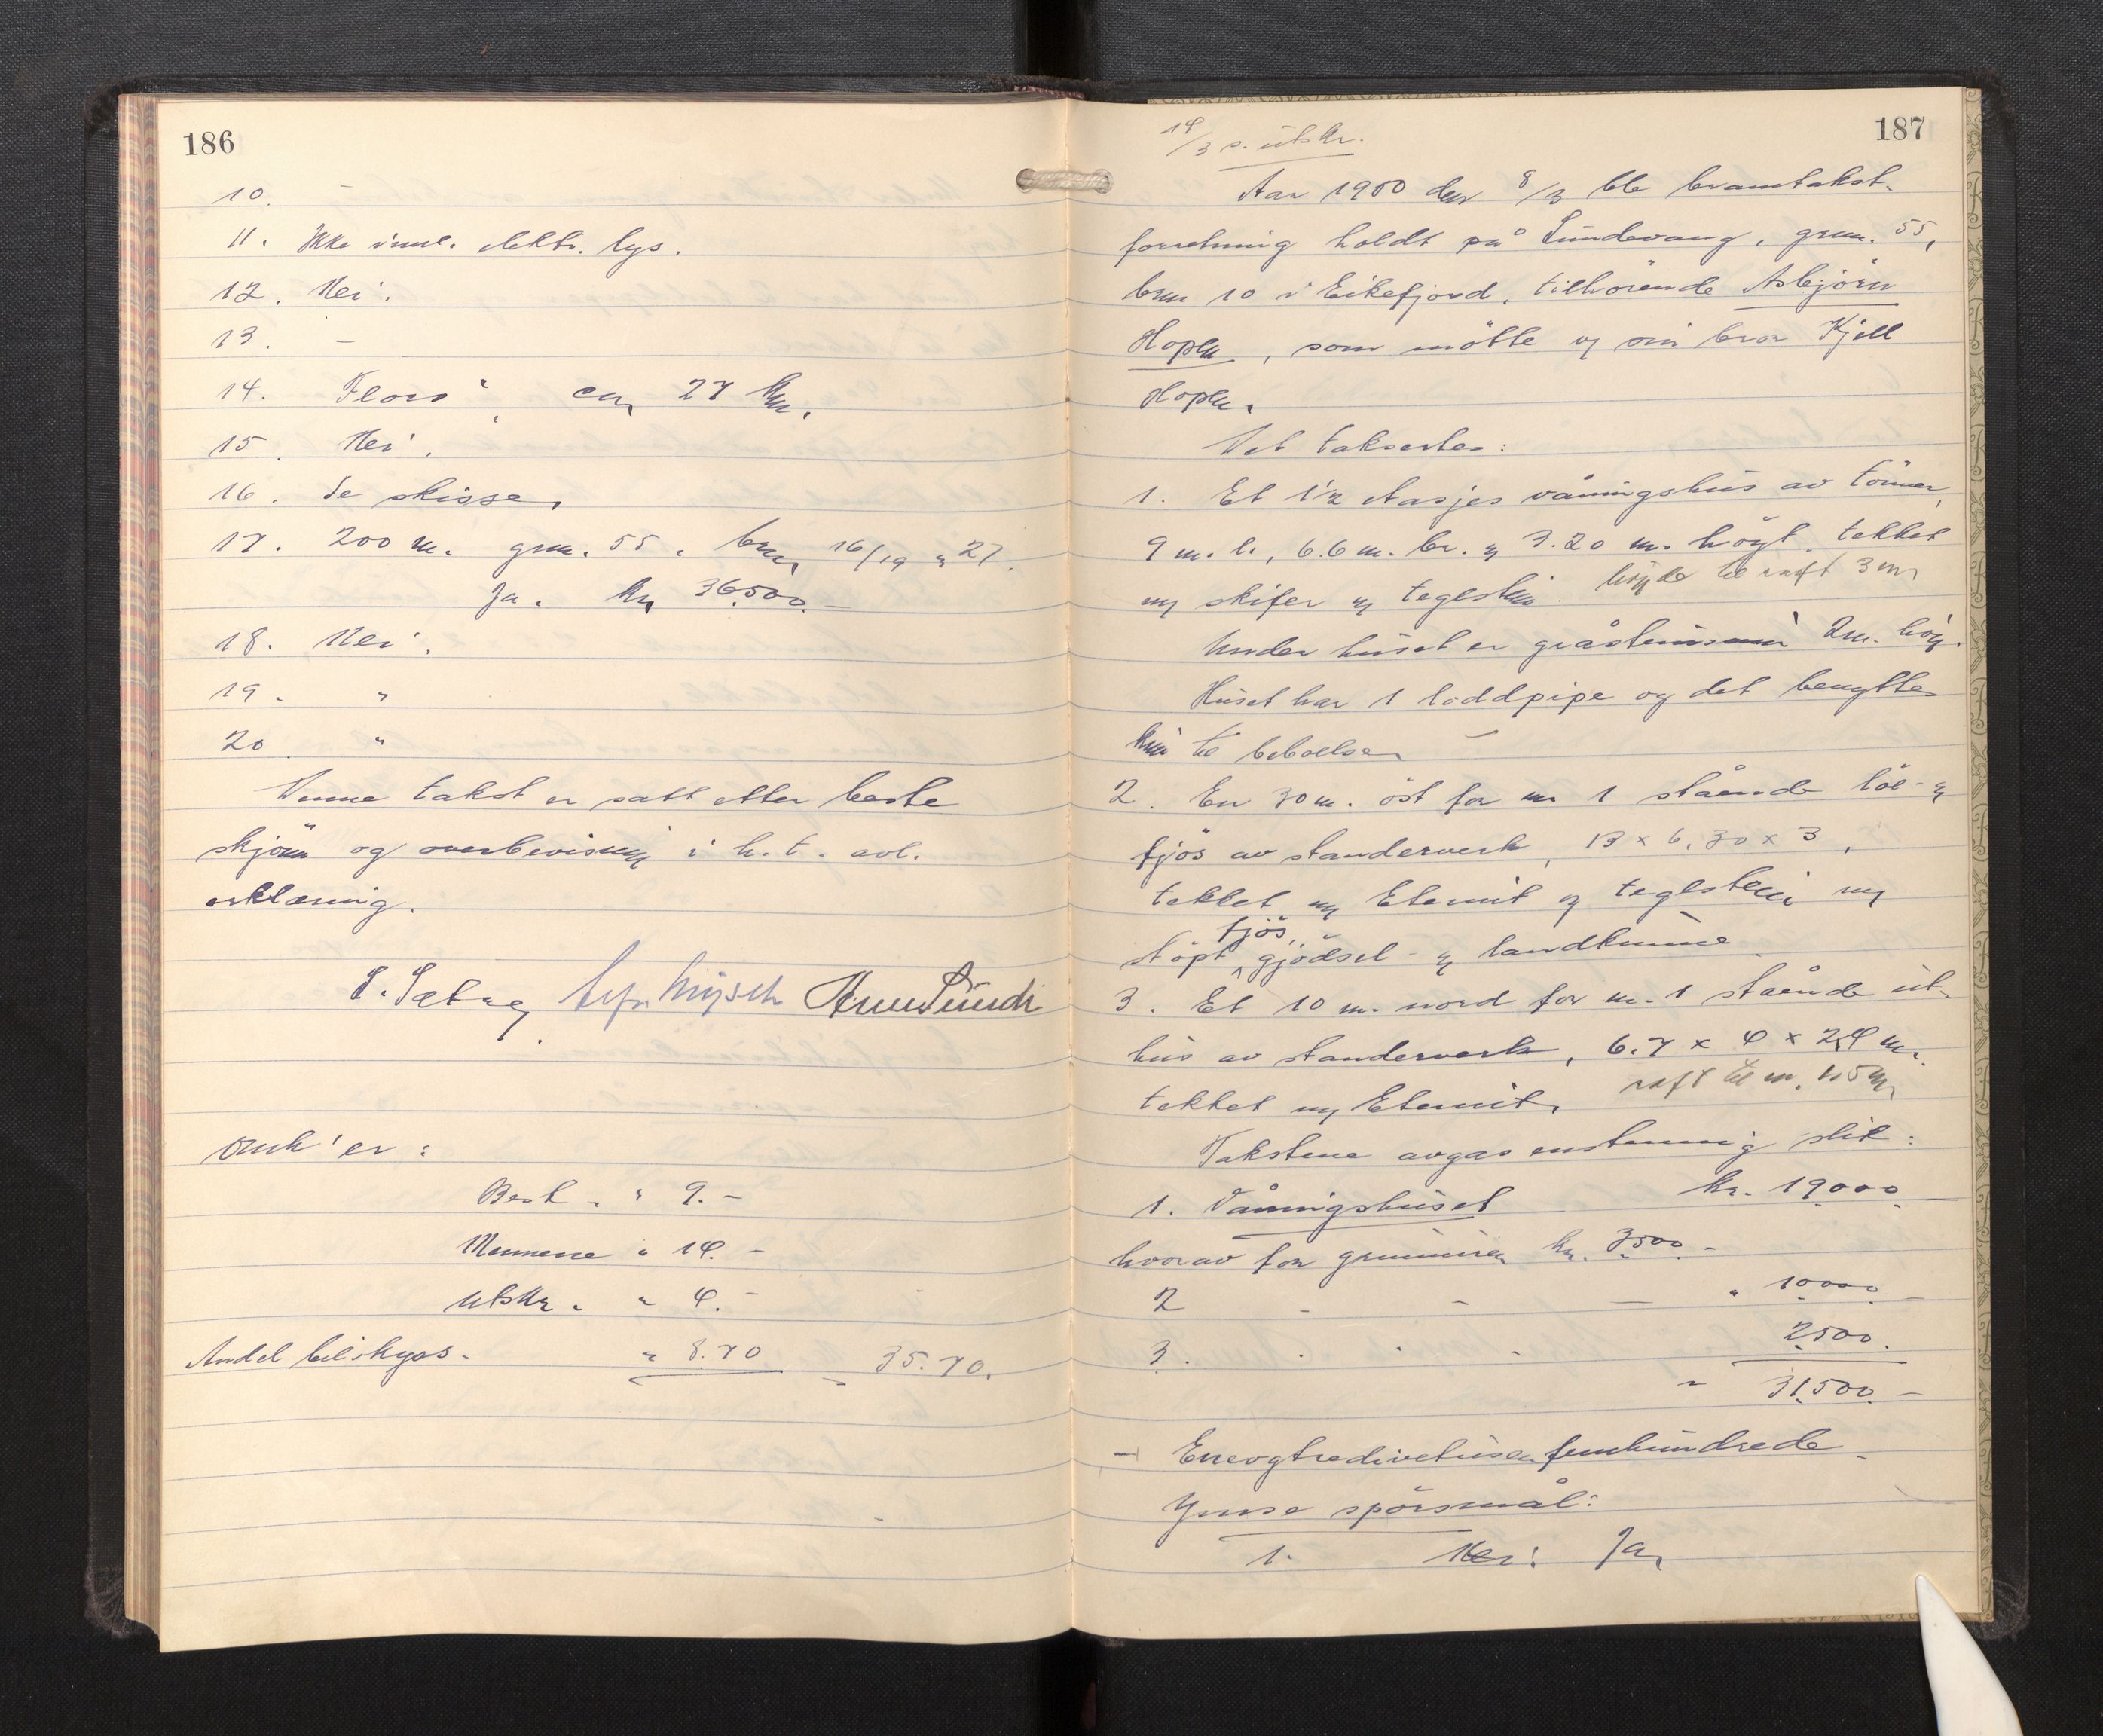 186
10. –
11. Ikke innl. elektr. lys.
12. Nei.
13. –
14. Florø, ca, 27 km.
15. Nei.
16. Se skisse,
17. 200 m. gnr. 55. bnr, 16/19 " 27.
Ja. kr, 36500.–
18. Nei.
19. "
20 "
Denne takst er satt etter beste
skjönn og overbevisning i h. t. avl.
erklæring.
S. Sætre,
Omk'er:
Best. " 9.–
Mennene " 14.–
Utskr. " 4.–
Andel bilskyss. " 8.70 = 35.70.
187
14/3 s. utskr.
Aar 1950 den 8/3 ble branntakst-
forretning holdt på Lundevang, gnr. 55,
bnr 10 i Eikefjord, tilhörende Asbjörn
Hopen, som mötte og sin bror Kjell
Hopen.
Det taksertes:
1. Et 1½ etasjes våningshus av tömmer,
9 m. l., 6.6 m. br. og 3.20 m. högt. tekket
m/ skifer og teglstein. höyde til raft 3 m,
Under huset er gråsteinsmur 2 m. höy.
Huset har 1 loddpipe og det benyttes
kun til beboelse.
2. En 30 m. öst for nr 1 stående löe- og
fjös av standerverk, 13 x 6,30 x 3,
tekket m/ Eternit og teglstein m/
fjös,
stöpt gjödsel- og landkumme.
3. Et 10 m. nord for nr. 1 stående ut-
hus av standerverk, 6.7 x 4 x 2,4 m.
tekket m/ Eternit, raft til m.
Takstene avgas enstemmig slik:
1. Våningshuset kr. 19000.–
hvorav for grunnmuren kr. 3500.–
2 – – – " 10000.–
3. . . . 2500.
" 31500.–
– Enogtredivetusen femhundrede –
Ymse spörsmål:
1. Nei. Ja,